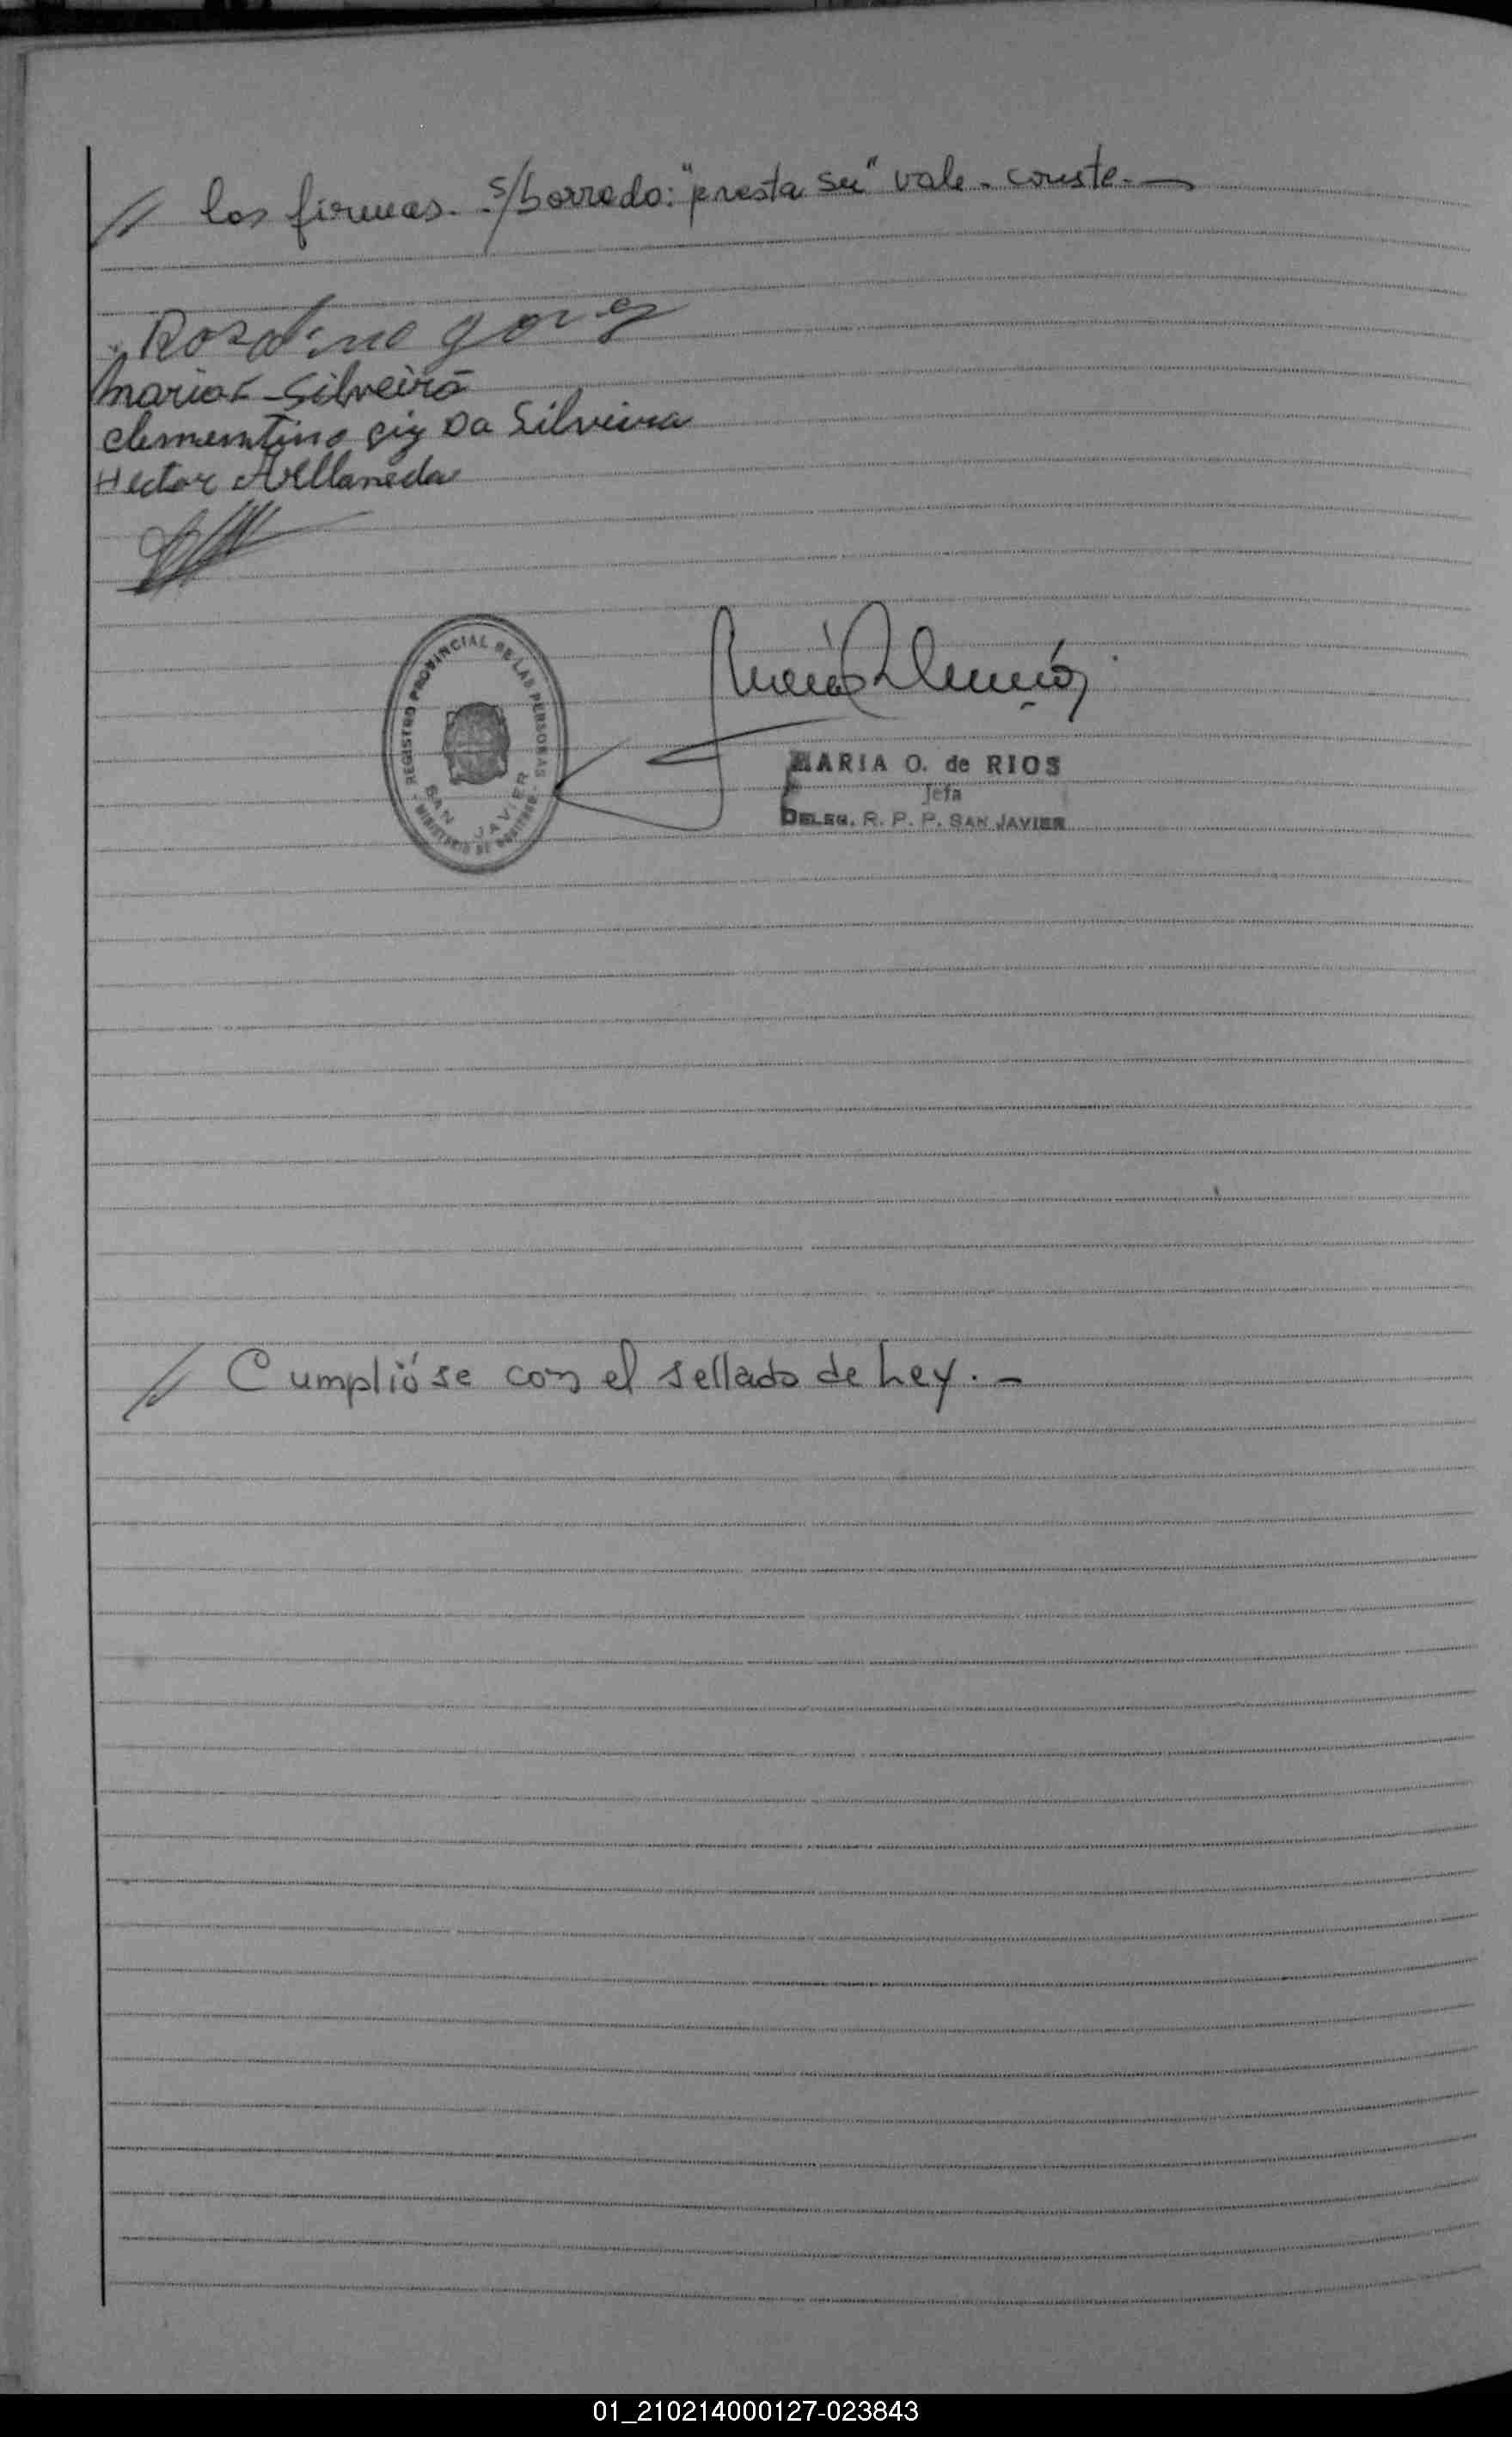 // las firmas.- S/borrado: "presta su" vale. conste.—
Rosalino
Maria Silveira
clementino Da Silveira
Hector Avellaneda
REGISTRO PROVINCIAL DE LAS PERSONAS
SAN JAVIER
MINISTERIO DE GOBIERNO
MARIA O. de RIOS
Jefa
DELEG. R. P. P. SAN JAVIER
// Cumplióse con el sellado de Ley.-
01_210214000127-023843